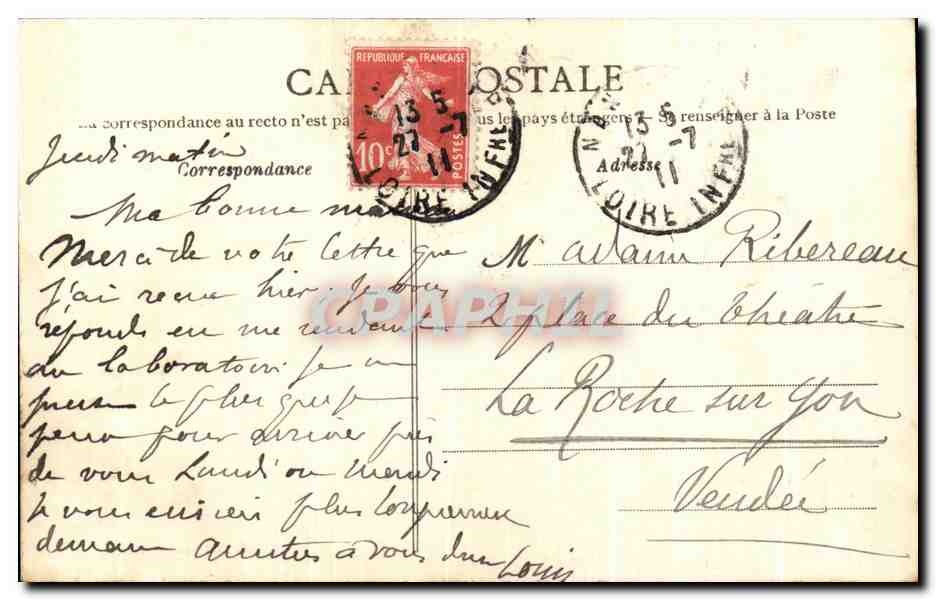 CARTE POSTALE
La correspondance au recto n'est pas les pays étrangers — Se renseigner à la Poste
Correspondance
Adresse
REPUBLIQUE FRANÇAISE
10c POSTES
13 5
27 -7
11
LOIRE INFRE
13 5
27 -7
11
LOIRE INFRE
Jeudi matin
Ma bonne maman
Merci de votre lettre que
j'ai recue hier. Je vous
réponds en me rendant
au laboratoire je me
presse le plus que je
peux pour arriver près
de vous Lundi ou Mardi
Je vous écrirai plus longuement
demain Amitiés à vous deux
Louis
Madame Ribereau
2 place du théâtre
La Roche sur Yon
Vendée
CPAPHIL